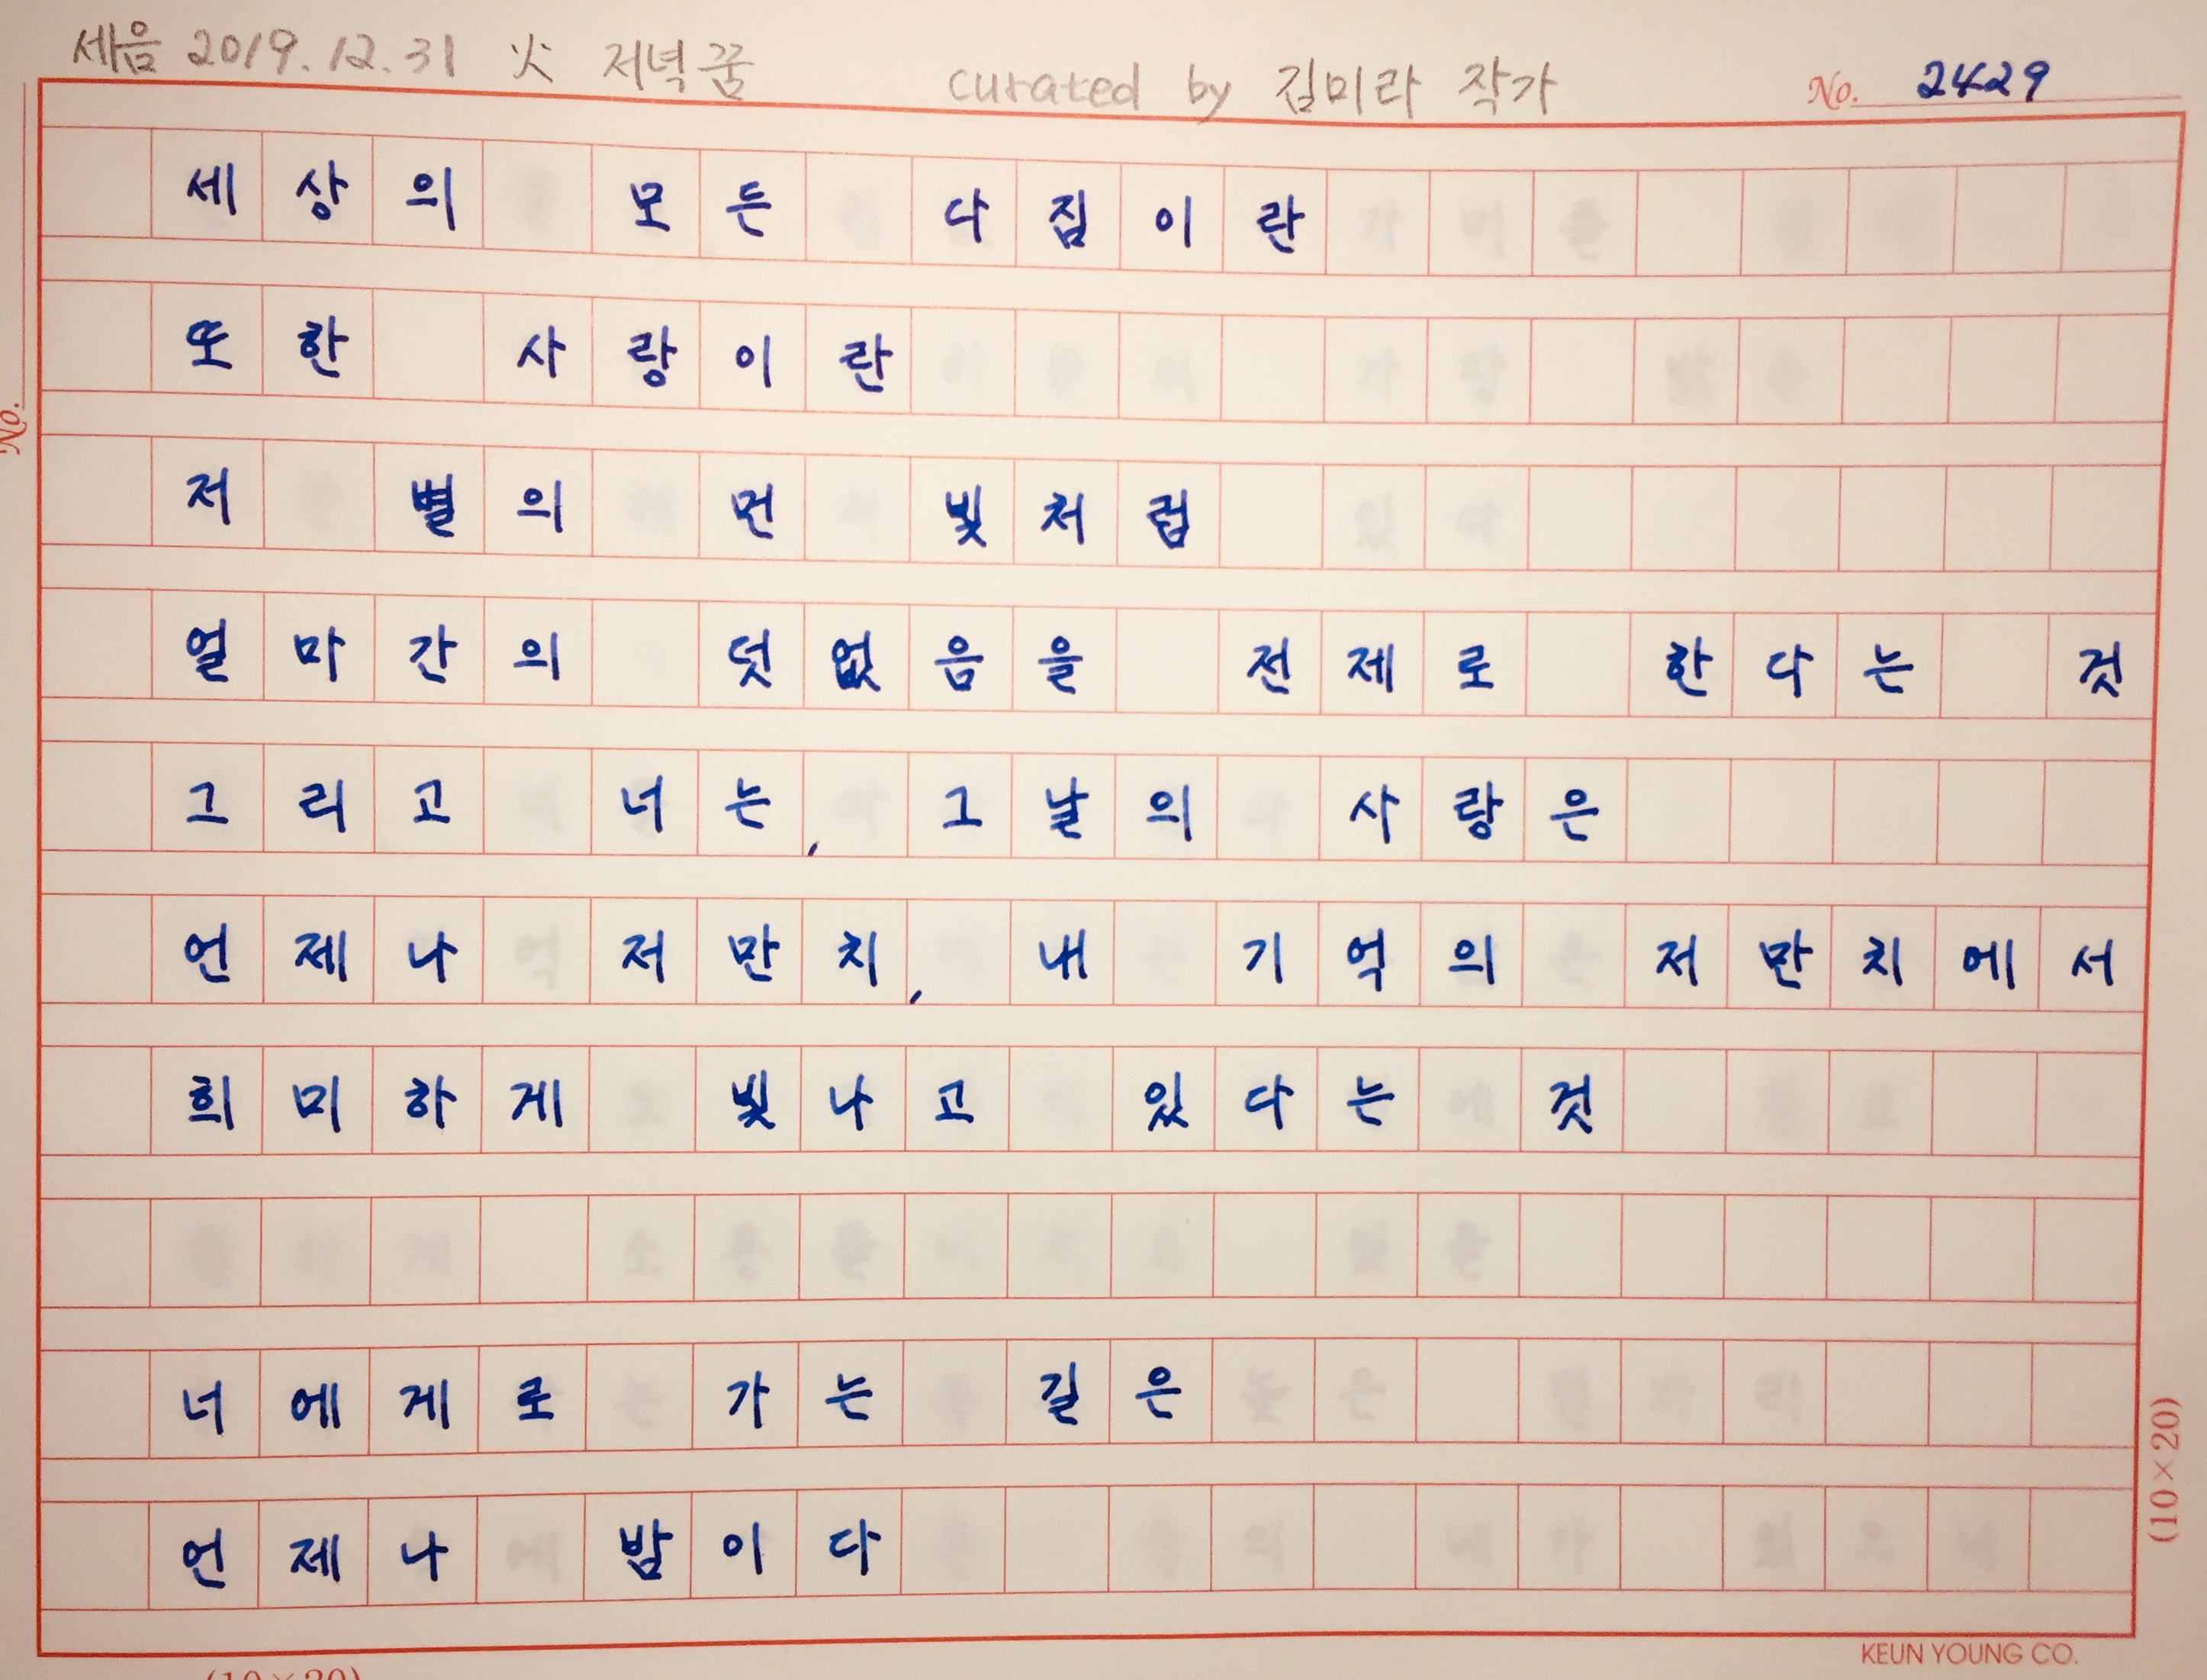 세음 2019.12.31 火 저녁꿈 curated by 김미라 작가 No. 2429
세상의 모든 다짐이란
또한 사랑이란
No.
저 별의 먼 빛처럼
얼마간의 덧없음을 전제로 한다는 것
그리고 너는, 그날의 사랑은
언제나 저만치, 내 기억의 저만치에서
희미하게 빛나고 있다는 것
너에게로 가는 길은
언제나 밤이다
(10×20)
KEUN YOUNG CO.
(10×20)